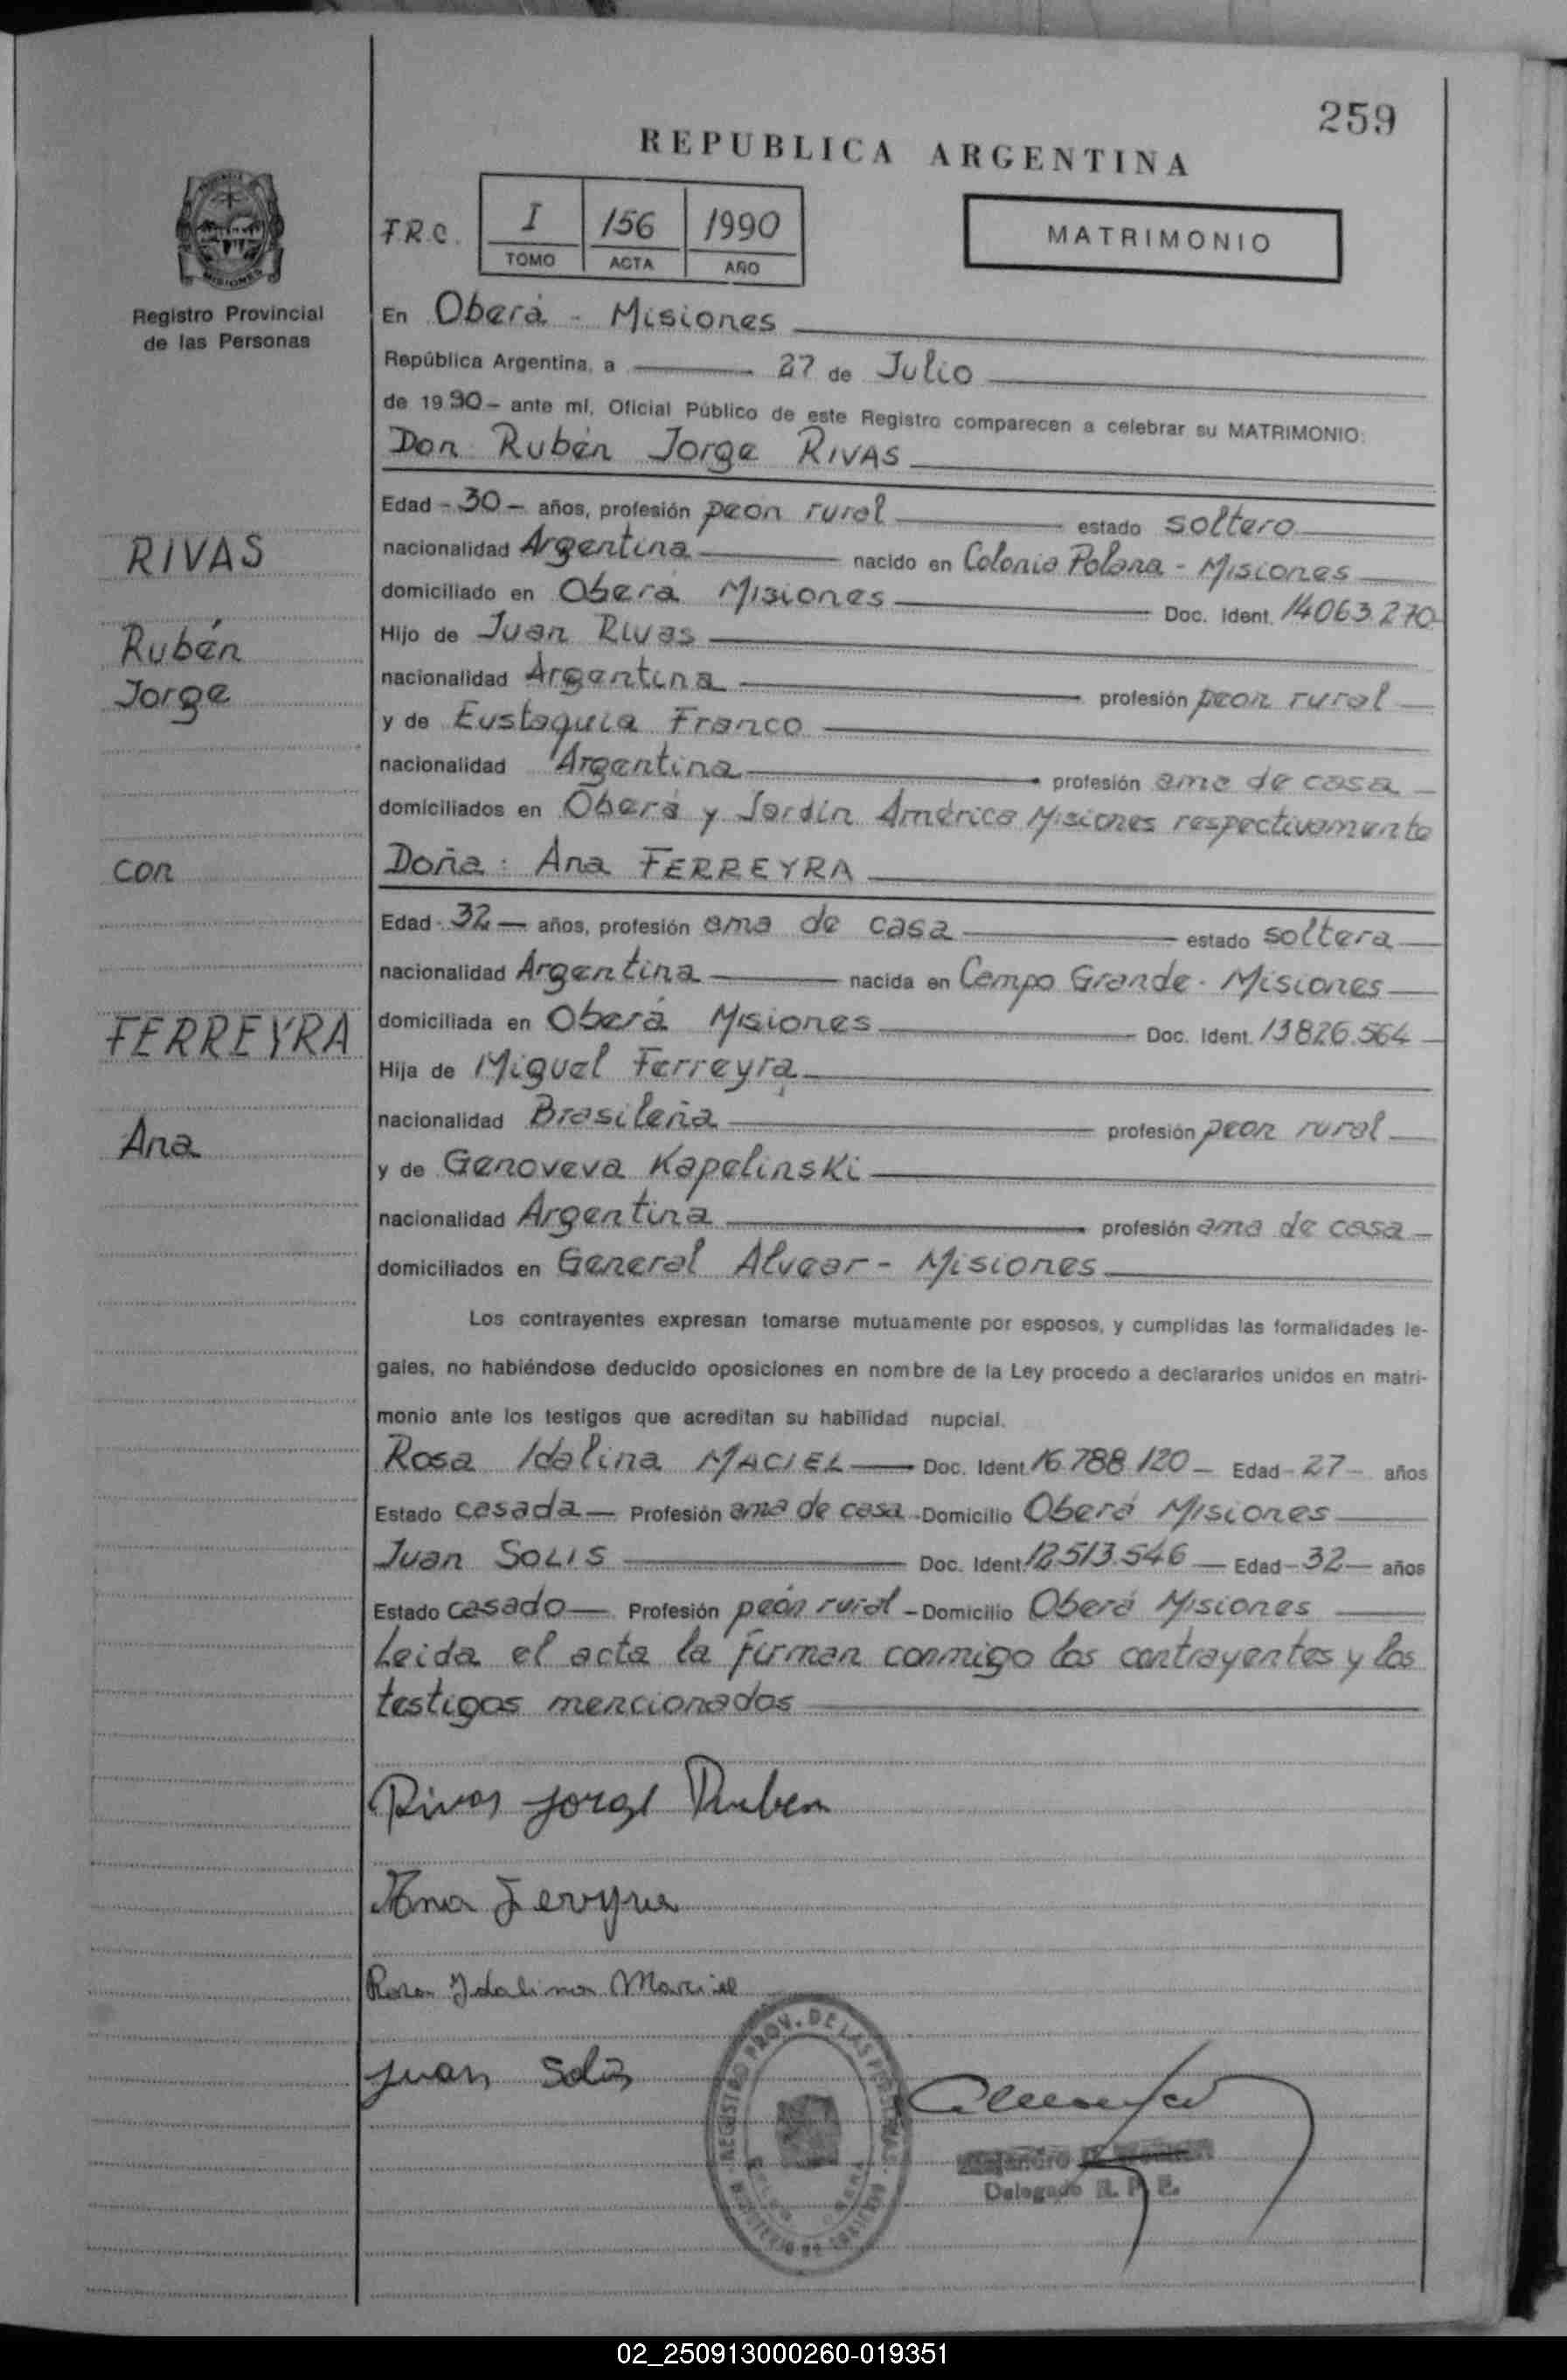 259
REPUBLICA ARGENTINA
F.R.C. I 156 1990
TOMO ACTA AÑO
MATRIMONIO
Registro Provincial
de las Personas
En Oberá - Misiones
República Argentina, a 27 de Julio
de 1990 - ante mí, Oficial Público de este Registro comparecen a celebrar su MATRIMONIO:
Don Rubén Jorge RIVAS
Edad - 30 - años, profesión peón rural estado soltero
nacionalidad Argentina nacido en Colonia Polana - Misiones
domiciliado en Oberá Misiones Doc. Ident. 14063.270
Hijo de Juan Rivas
nacionalidad Argentina profesión peon rural
y de Eustaquia Franco
nacionalidad Argentina profesión ama de casa
domiciliados en Oberá y Jardín América Misiones respectivamente
RIVAS
Rubén
Jorge
con
FERREYRA
Ana
Doña: Ana FERREYRA
Edad - 32 - años, profesión ama de casa estado soltera
nacionalidad Argentina nacida en Campo Grande - Misiones
domiciliada en Oberá Misiones Doc. Ident. 13826.564
Hija de Miguel Ferreyra
nacionalidad Brasileña profesión peon rural
y de Genoveva Kapelinski
nacionalidad Argentina profesión ama de casa
domiciliados en General Alvear - Misiones
Los contrayentes expresan tomarse mutuamente por esposos, y cumplidas las formalidades le-
gales, no habiéndose deducido oposiciones en nombre de la Ley procedo a declararlos unidos en matri-
monio ante los testigos que acreditan su habilidad nupcial.
Rosa Idalina MACIEL Doc. Ident. 16.788.120 - Edad - 27 - años
Estado casada - Profesión ama de casa - Domicilio Oberá Misiones
Juan SOLIS Doc. Ident. 12.513.546 - Edad - 32 - años
Estado casado - Profesión peón rural - Domicilio Oberá Misiones
Leida el acta la firman conmigo los contrayentes y los
testigos mencionados
Rivas Jorge Ruben
Ana Ferreyra
Rosa Idalina Maciel
Juan Solis
REGISTRO PROV. DE LAS PERSONAS
Delegado R. P. P.
02_250913000260-019351